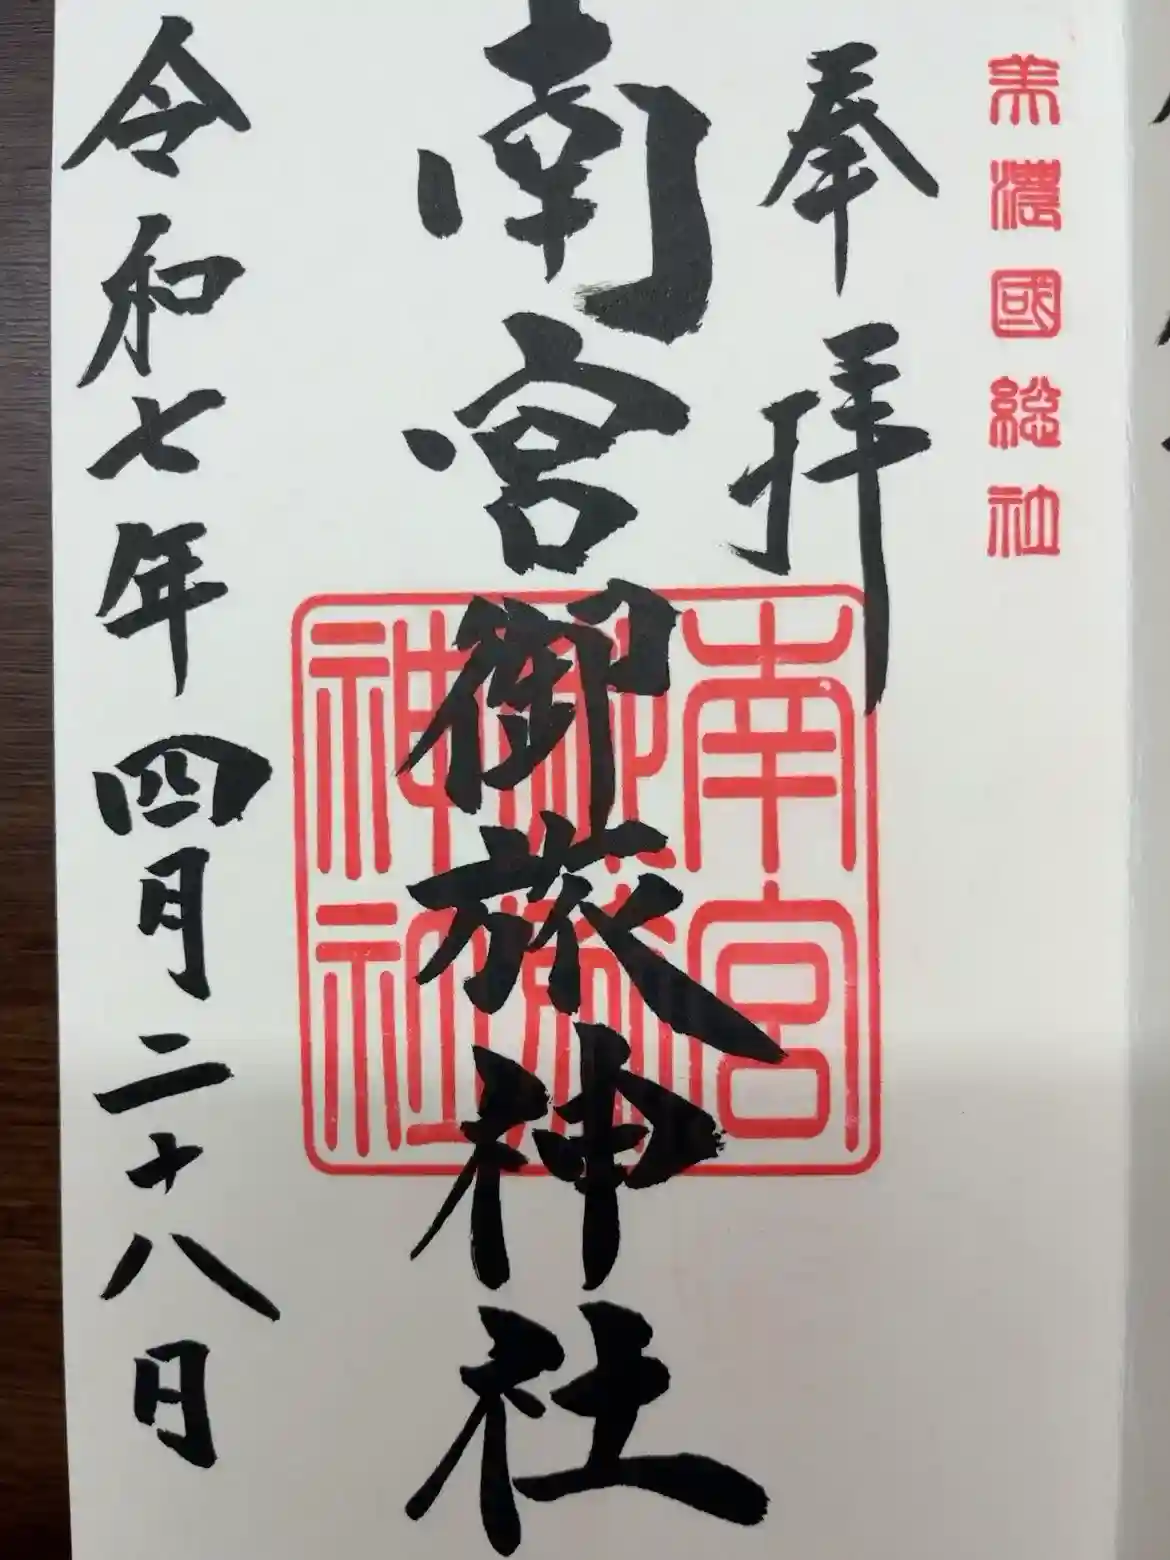 美濃國総社
奉拝
南宮御旅神社
南宮御旅神社
令和七年四月二十八日